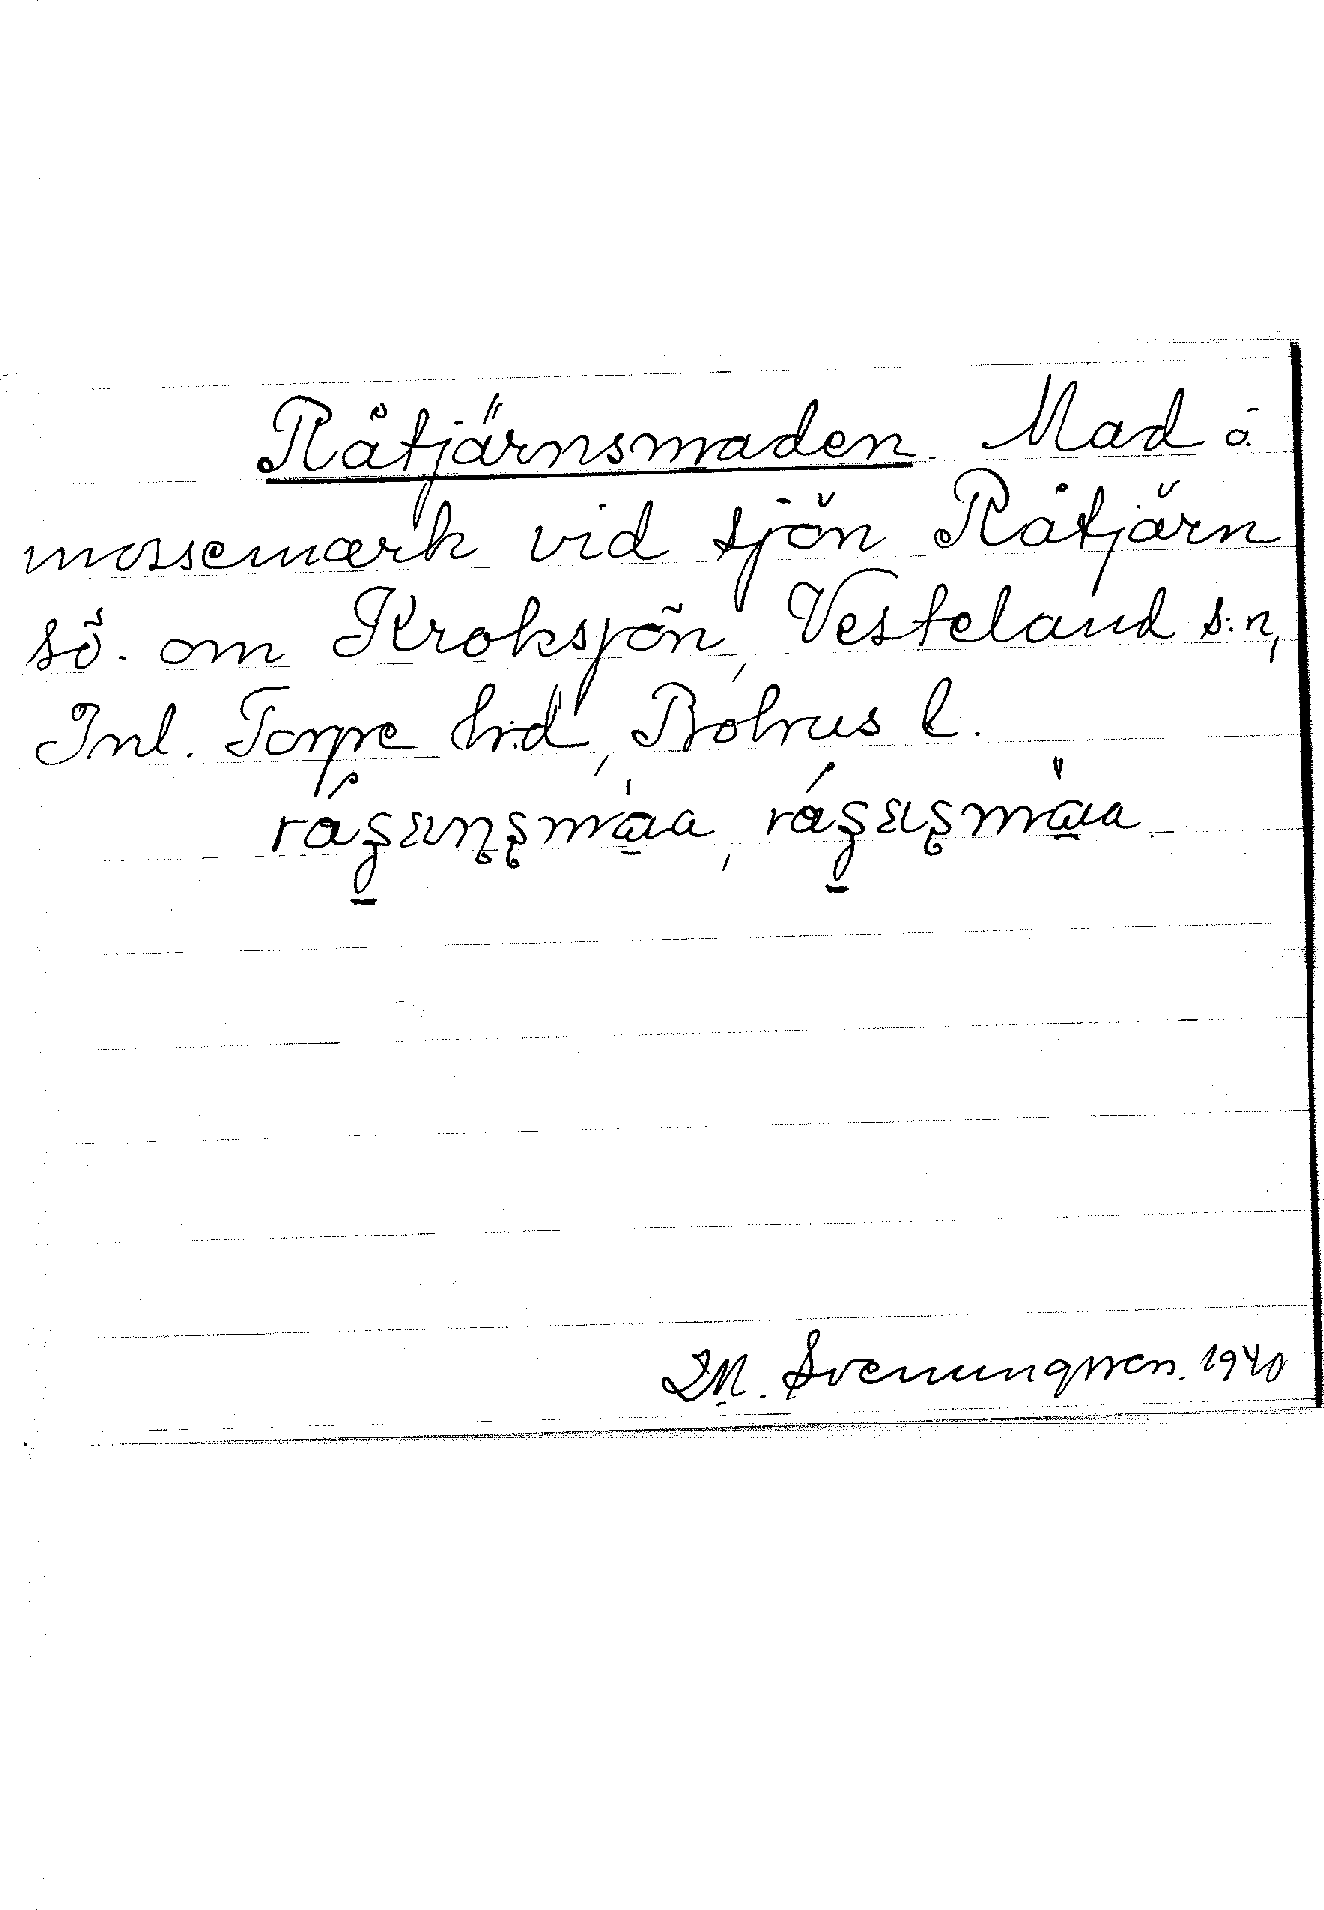 Råtjärnsmaden. Mad å
mossemark vid sjön Råtjärn
sö. om Kroksjön, Vesteland s:n,
Inl. Torpe hrd, Bohus l.
D.M. Svenungsson. 1940